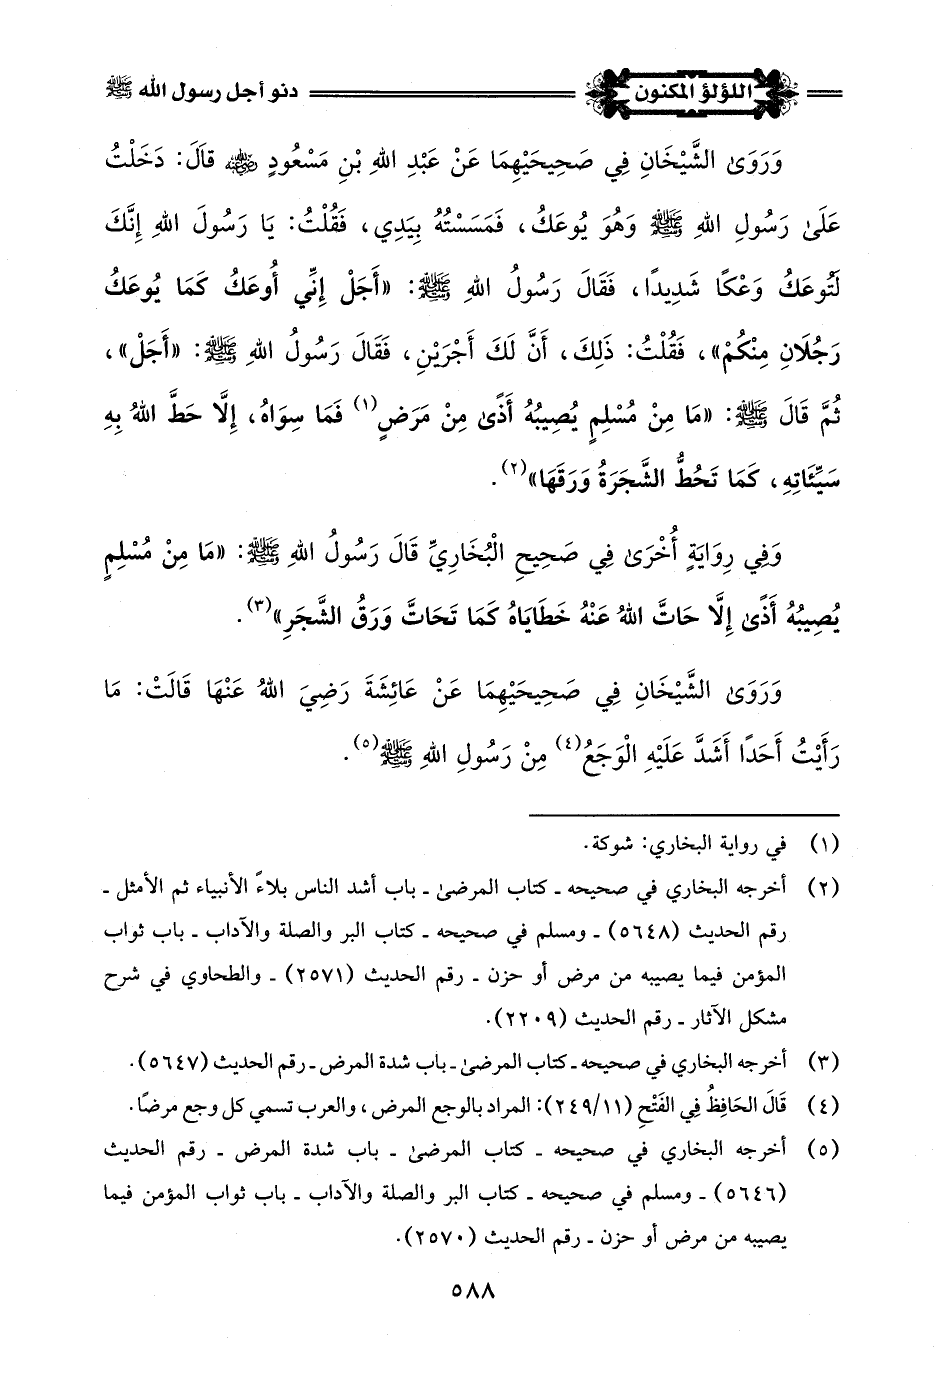 اللؤلؤ المكنون
دنو أجل رسول الله ﷺ
وَرَوَىٰ الشَّيْخَانِ فِي صَحِيحَيْهِمَا عَنْ عَبْدِ اللهِ بْنِ مَسْعُودٍ رضي الله عنه قَالَ: دَخَلْتُ
عَلَىٰ رَسُولِ اللهِ ﷺ وَهُوَ يُوعَكُ، فَمَسَسْتُهُ بِيَدِي، فَقُلْتُ: يَا رَسُولَ اللهِ إِنَّكَ
لَتُوعَكُ وَعْكًا شَدِيدًا، فَقَالَ رَسُولُ اللهِ ﷺ: «أَجَلْ إِنِّي أُوعَكُ كَمَا يُوعَكُ
رَجُلَانِ مِنْكُمْ»، فَقُلْتُ: ذَلِكَ، أَنَّ لَكَ أَجْرَيْنِ، فَقَالَ رَسُولُ اللهِ ﷺ: «أَجَلْ»،
ثُمَّ قَالَ ﷺ: «مَا مِنْ مُسْلِمٍ يُصِيبُهُ أَذًىٰ مِنْ مَرَضٍ(١) فَمَا سِوَاهُ، إِلَّا حَطَّ اللهُ بِهِ
سَيِّئَاتِهِ، كَمَا تَحُطُّ الشَّجَرَةُ وَرَقَهَا»(٢).
وَفِي رِوَايَةٍ أُخْرَىٰ فِي صَحِيحِ الْبُخَارِيِّ قَالَ رَسُولُ اللهِ ﷺ: «مَا مِنْ مُسْلِمٍ
يُصِيبُهُ أَذًىٰ إِلَّا حَاتَّ اللهُ عَنْهُ خَطَايَاهُ كَمَا تَحَاتَّ وَرَقُ الشَّجَرِ»(٣).
وَرَوَىٰ الشَّيْخَانِ فِي صَحِيحَيْهِمَا عَنْ عَائِشَةَ رَضِيَ اللهُ عَنْهَا قَالَتْ: مَا
رَأَيْتُ أَحَدًا أَشَدَّ عَلَيْهِ الْوَجَعُ(٤) مِنْ رَسُولِ اللهِ ﷺ(٥).
(١) في رواية البخاري: شوكة.
(٢) أخرجه البخاري في صحيحه ـ كتاب المرضىٰ ـ باب أشد الناس بلاءً الأنبياء ثم الأمثل ـ
رقم الحديث (٥٦٤٨) ـ ومسلم في صحيحه ـ كتاب البر والصلة والآداب ـ باب ثواب
المؤمن فيما يصيبه من مرض أو حزن ـ رقم الحديث (٢٥٧١) ـ والطحاوي في شرح
مشكل الآثار ـ رقم الحديث (٢٢٠٩).
(٣) أخرجه البخاري في صحيحه ـ كتاب المرضىٰ ـ باب شدة المرض ـ رقم الحديث (٥٦٤٧).
(٤) قَالَ الحَافِظُ فِي الفَتْحِ (٢٤٩/١١): المراد بالوجع المرض، والعرب تسمي كل وجع مرضًا.
(٥) أخرجه البخاري في صحيحه ـ كتاب المرضىٰ ـ باب شدة المرض ـ رقم الحديث
(٥٦٤٦) ـ ومسلم في صحيحه ـ كتاب البر والصلة والآداب ـ باب ثواب المؤمن فيما
يصيبه من مرض أو حزن ـ رقم الحديث (٢٥٧٠).
٥٨٨